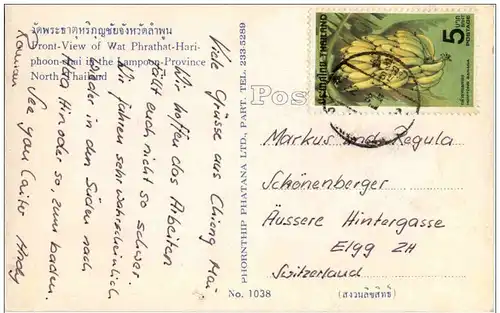 วัดพระธาตุหริภุญชัยจังหวัดลำพูน
Front-View of Wat Phrathat-Hari-
phoon-chai in the Lampoon-Province
North Thailand
Viele Grüsse aus Chiang Mai
Wir hoffen das Arbeiten
fällt euch nicht so schwer.
Wir fahren sehr wahrscheinlich
wieder in den Süden nach
Hua Hin oder so, zum baden.
See you later Andy
PHORNTHIP PHATANA LTD. PART. TEL. 233-5289
Post
ประเทศไทย THAILAND
5 บาท
BAHT
POSTAGE
Markus und Regula
Schönenberger
Äussere Hintergasse
Elgg ZH
Switzerland
No. 1038
(สงวนลิขสิทธิ์)